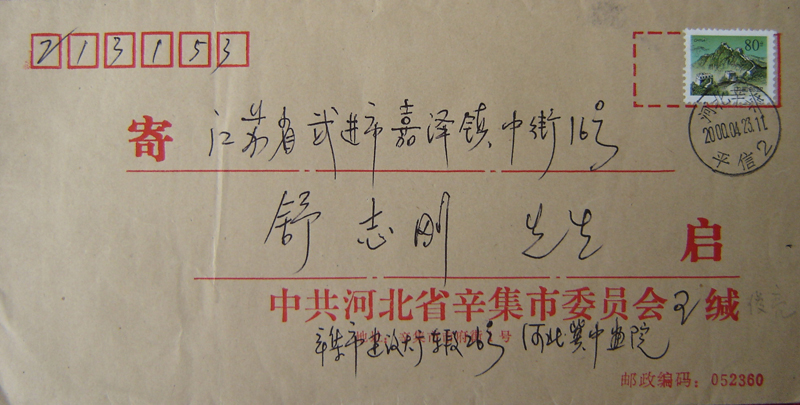 213153
80分
河北辛集
2000.04.23.11
平信2
寄 江苏省武进市嘉泽镇中街16号
舒志刚 先生 启
中共河北省辛集市委员会 王 缄
辛集市建设大街东段26号 河北冀中画院
邮政编码：052360